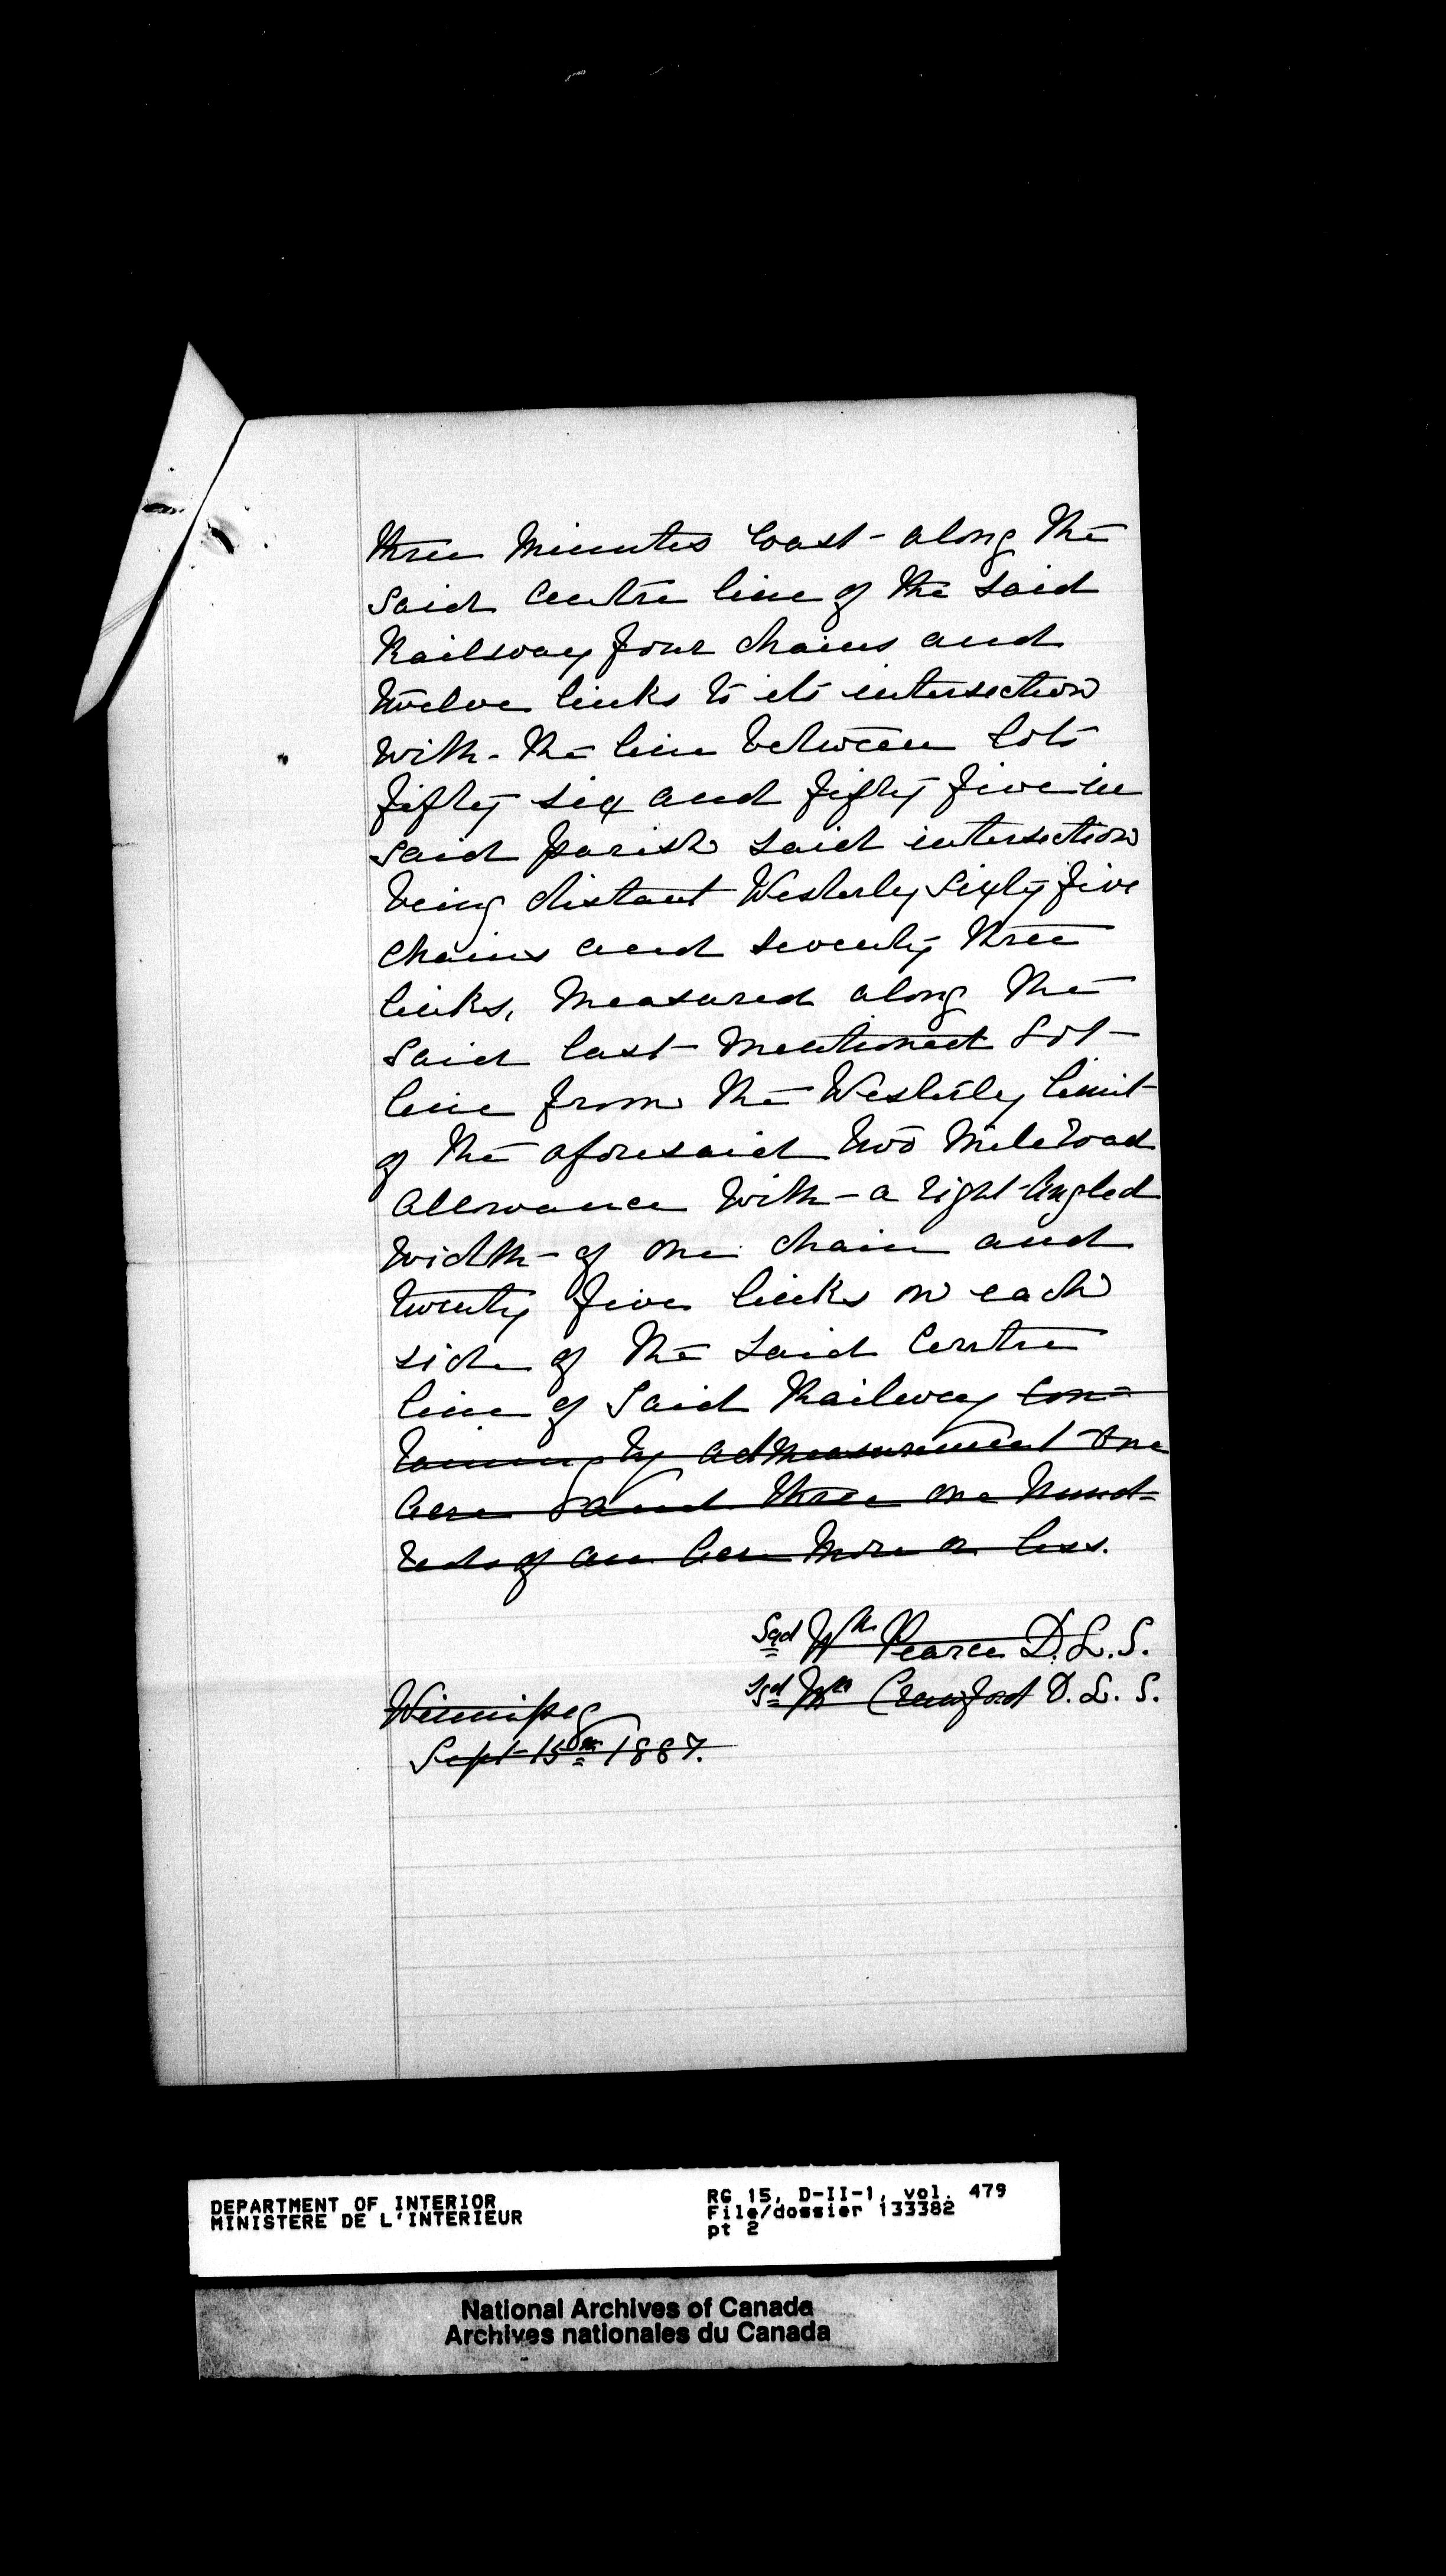 three minutes East along the
said centre line of the said
Railway four chains and
twelve links to its intersection
with the line between lots
fifty six and fifty five in
said parish said intersection
being distant Westerly Sixty five
chains and seventy three
links, measured along the
said last mentioned Lot
line from the Westerly limit
of the aforesaid two mile road
allowance with a right angled
width of one chain and
twenty five links on each
side of the said Centre
line of said Railway con=
taining by admeasurement One
acre and three one hund=
reds of an acre more or less.
Sgd Wm Pearce D.L.S.
Sgd Wm Crawford D.L.S.
Winnipeg
Sept 15th 1887.
DEPARTMENT OF INTERIOR
MINISTERE DE L'INTERIEUR
RG 15, D-II-1, vol. 479
File/dossier 133382
pt 2
National Archives of Canada
Archives nationales du Canada